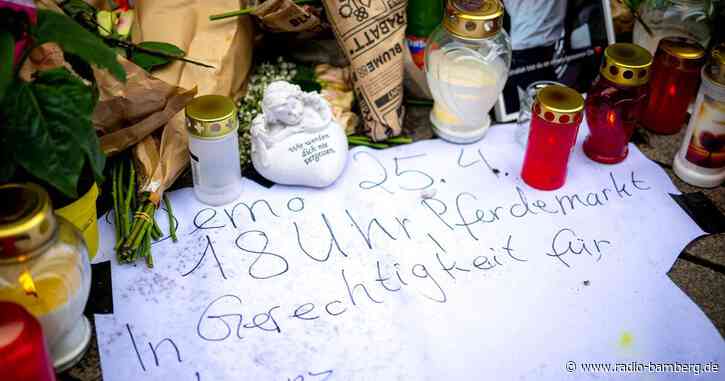 RABATT
BLUME
Wir werden
dich nie
vergessen.
emo 25.4.
18 Uhr, Pferdemarkt
In Gerechtigkeit für
© www.radio-bamberg.de